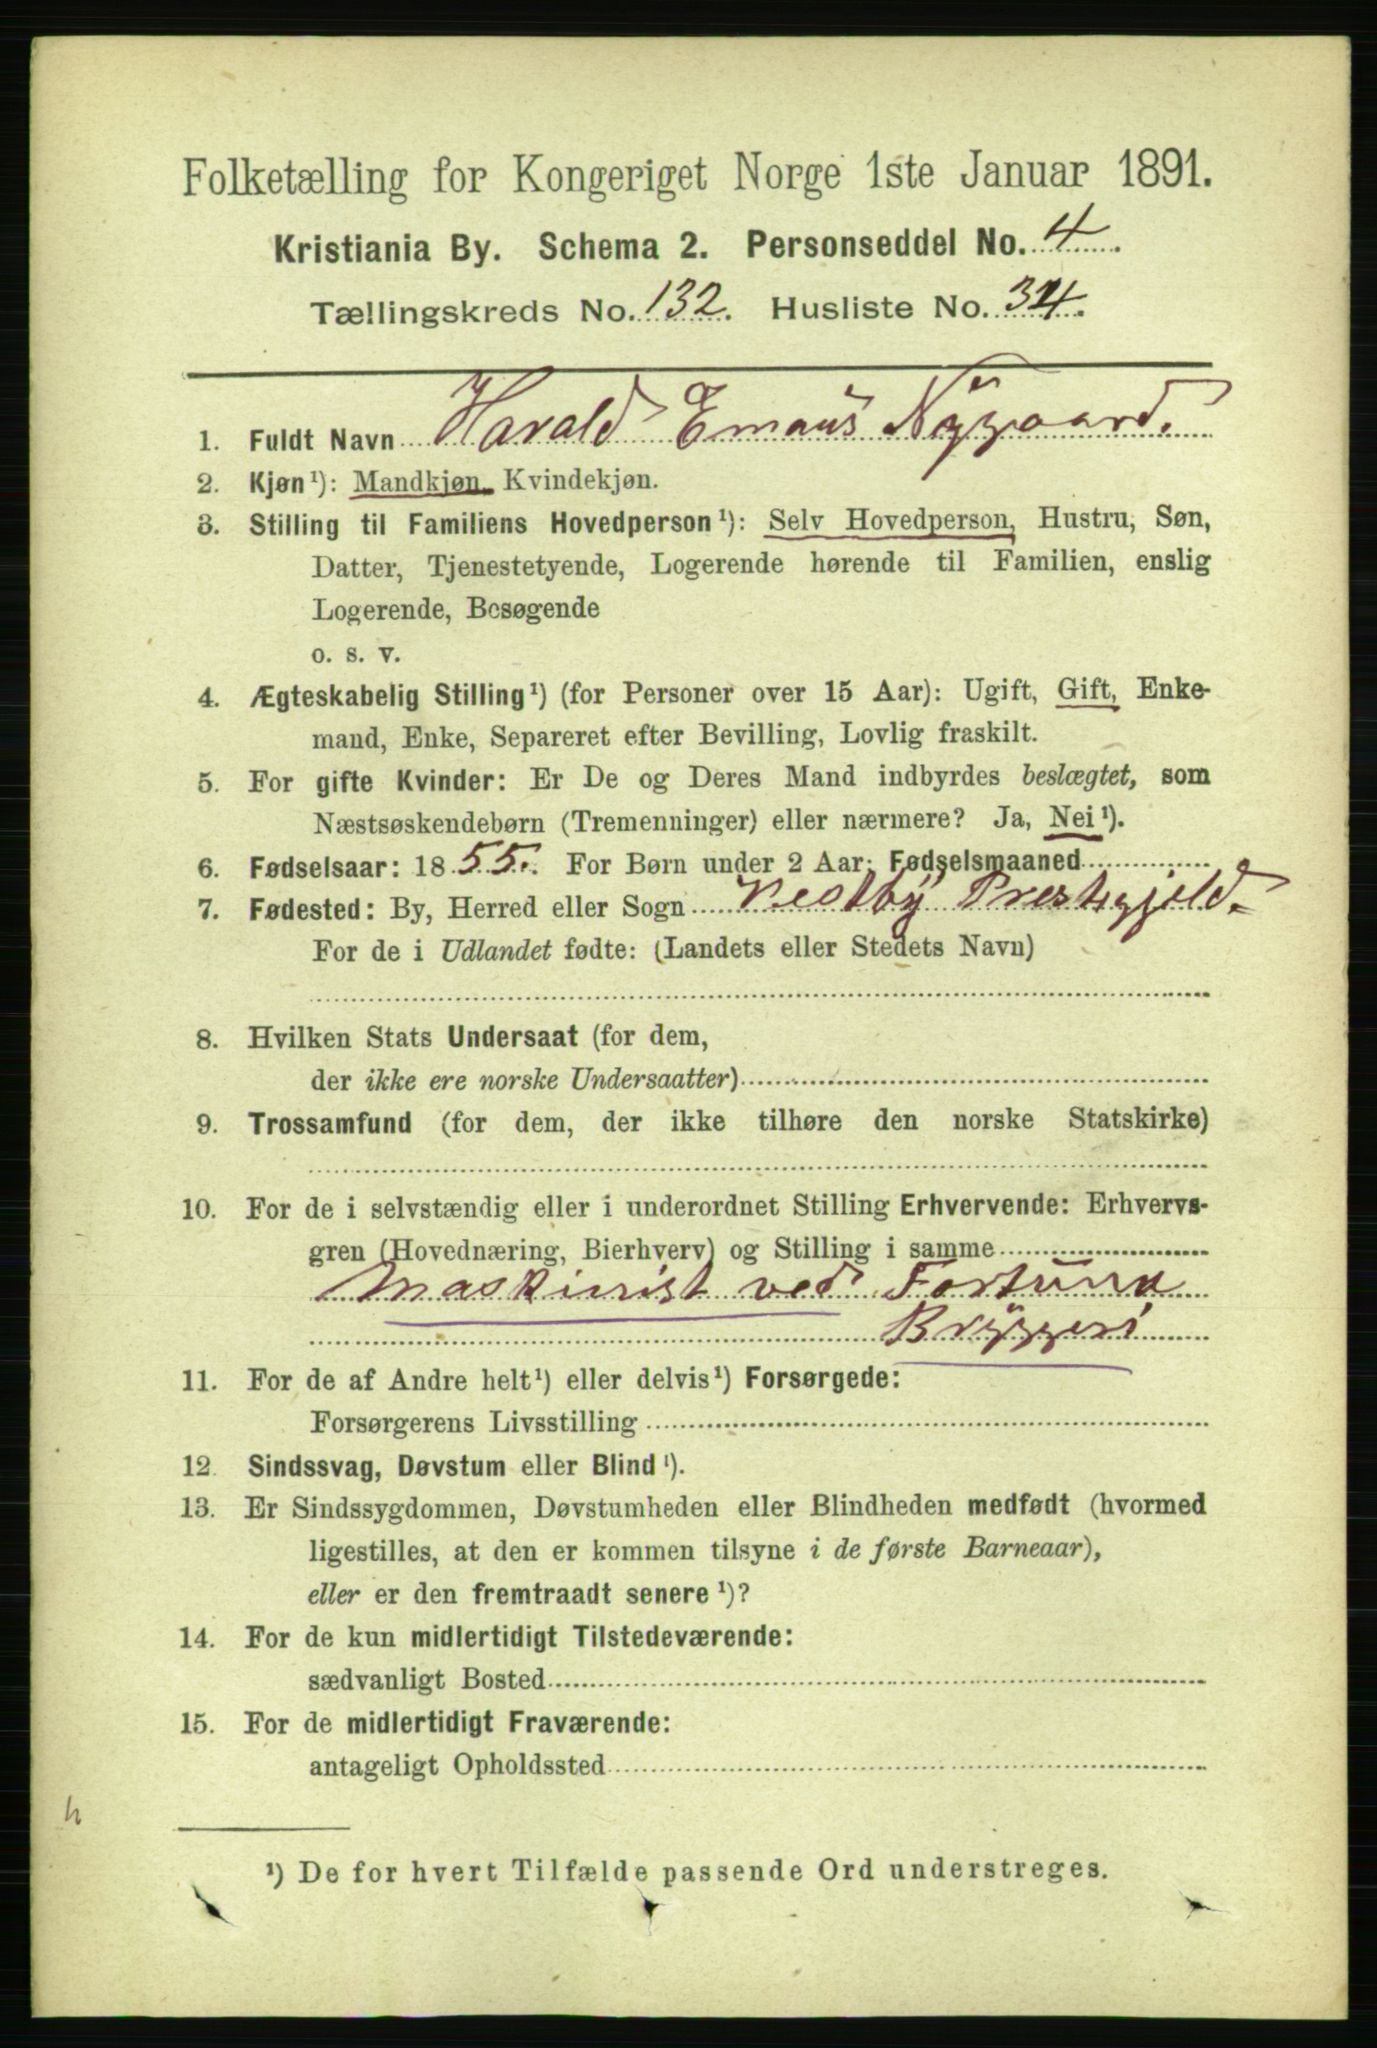 Folketælling for Kongeriget Norge 1ste Januar 1891.
Kristiania By. Schema 2. Personseddel No. 4
Tællingskreds No. 132. Husliste No. 34.
1. Fuldt Navn Harald Emaus Nygaard.
2. Kjøn¹): Mandkjøn, Kvindekjøn.
3. Stilling til Familiens Hovedperson¹): Selv Hovedperson, Hustru, Søn,
Datter, Tjenestetyende, Logerende hørende til Familien, enslig
Logerende, Besøgende
o. s. v.
4. Ægteskabelig Stilling¹) (for Personer over 15 Aar): Ugift, Gift, Enke-
mand, Enke, Separeret efter Bevilling, Lovlig fraskilt.
5. For gifte Kvinder: Er De og Deres Mand indbyrdes beslægtet, som
Næstsøskendebørn (Tremenninger) eller nærmere? Ja, Nei¹).
6. Fødselsaar: 1855. For Børn under 2 Aar: Fødselsmaaned
7. Fødested: By, Herred eller Sogn Vestby Prestegjeld.
For de i Udlandet fødte: (Landets eller Stedets Navn)
8. Hvilken Stats Undersaat (for dem,
der ikke ere norske Undersaatter)
9. Trossamfund (for dem, der ikke tilhøre den norske Statskirke)
10. For de i selvstændig eller i underordnet Stilling Erhvervende: Erhvervs-
gren (Hovednæring, Bierhverv) og Stilling i samme
Maskinist ved Fortuna
Bryggeri
11. For de af Andre helt¹) eller delvis¹) Forsørgede:
Forsørgerens Livsstilling
12. Sindssvag, Døvstum eller Blind¹).
13. Er Sindssygdommen, Døvstumheden eller Blindheden medfødt (hvormed
ligestilles, at den er kommen tilsyne i de første Barneaar),
eller er den fremtraadt senere¹)?
14. For de kun midlertidigt Tilstedeværende:
sædvanligt Bosted
15. For de midlertidigt Fraværende:
antageligt Opholdssted
¹) De for hvert Tilfælde passende Ord understreges.